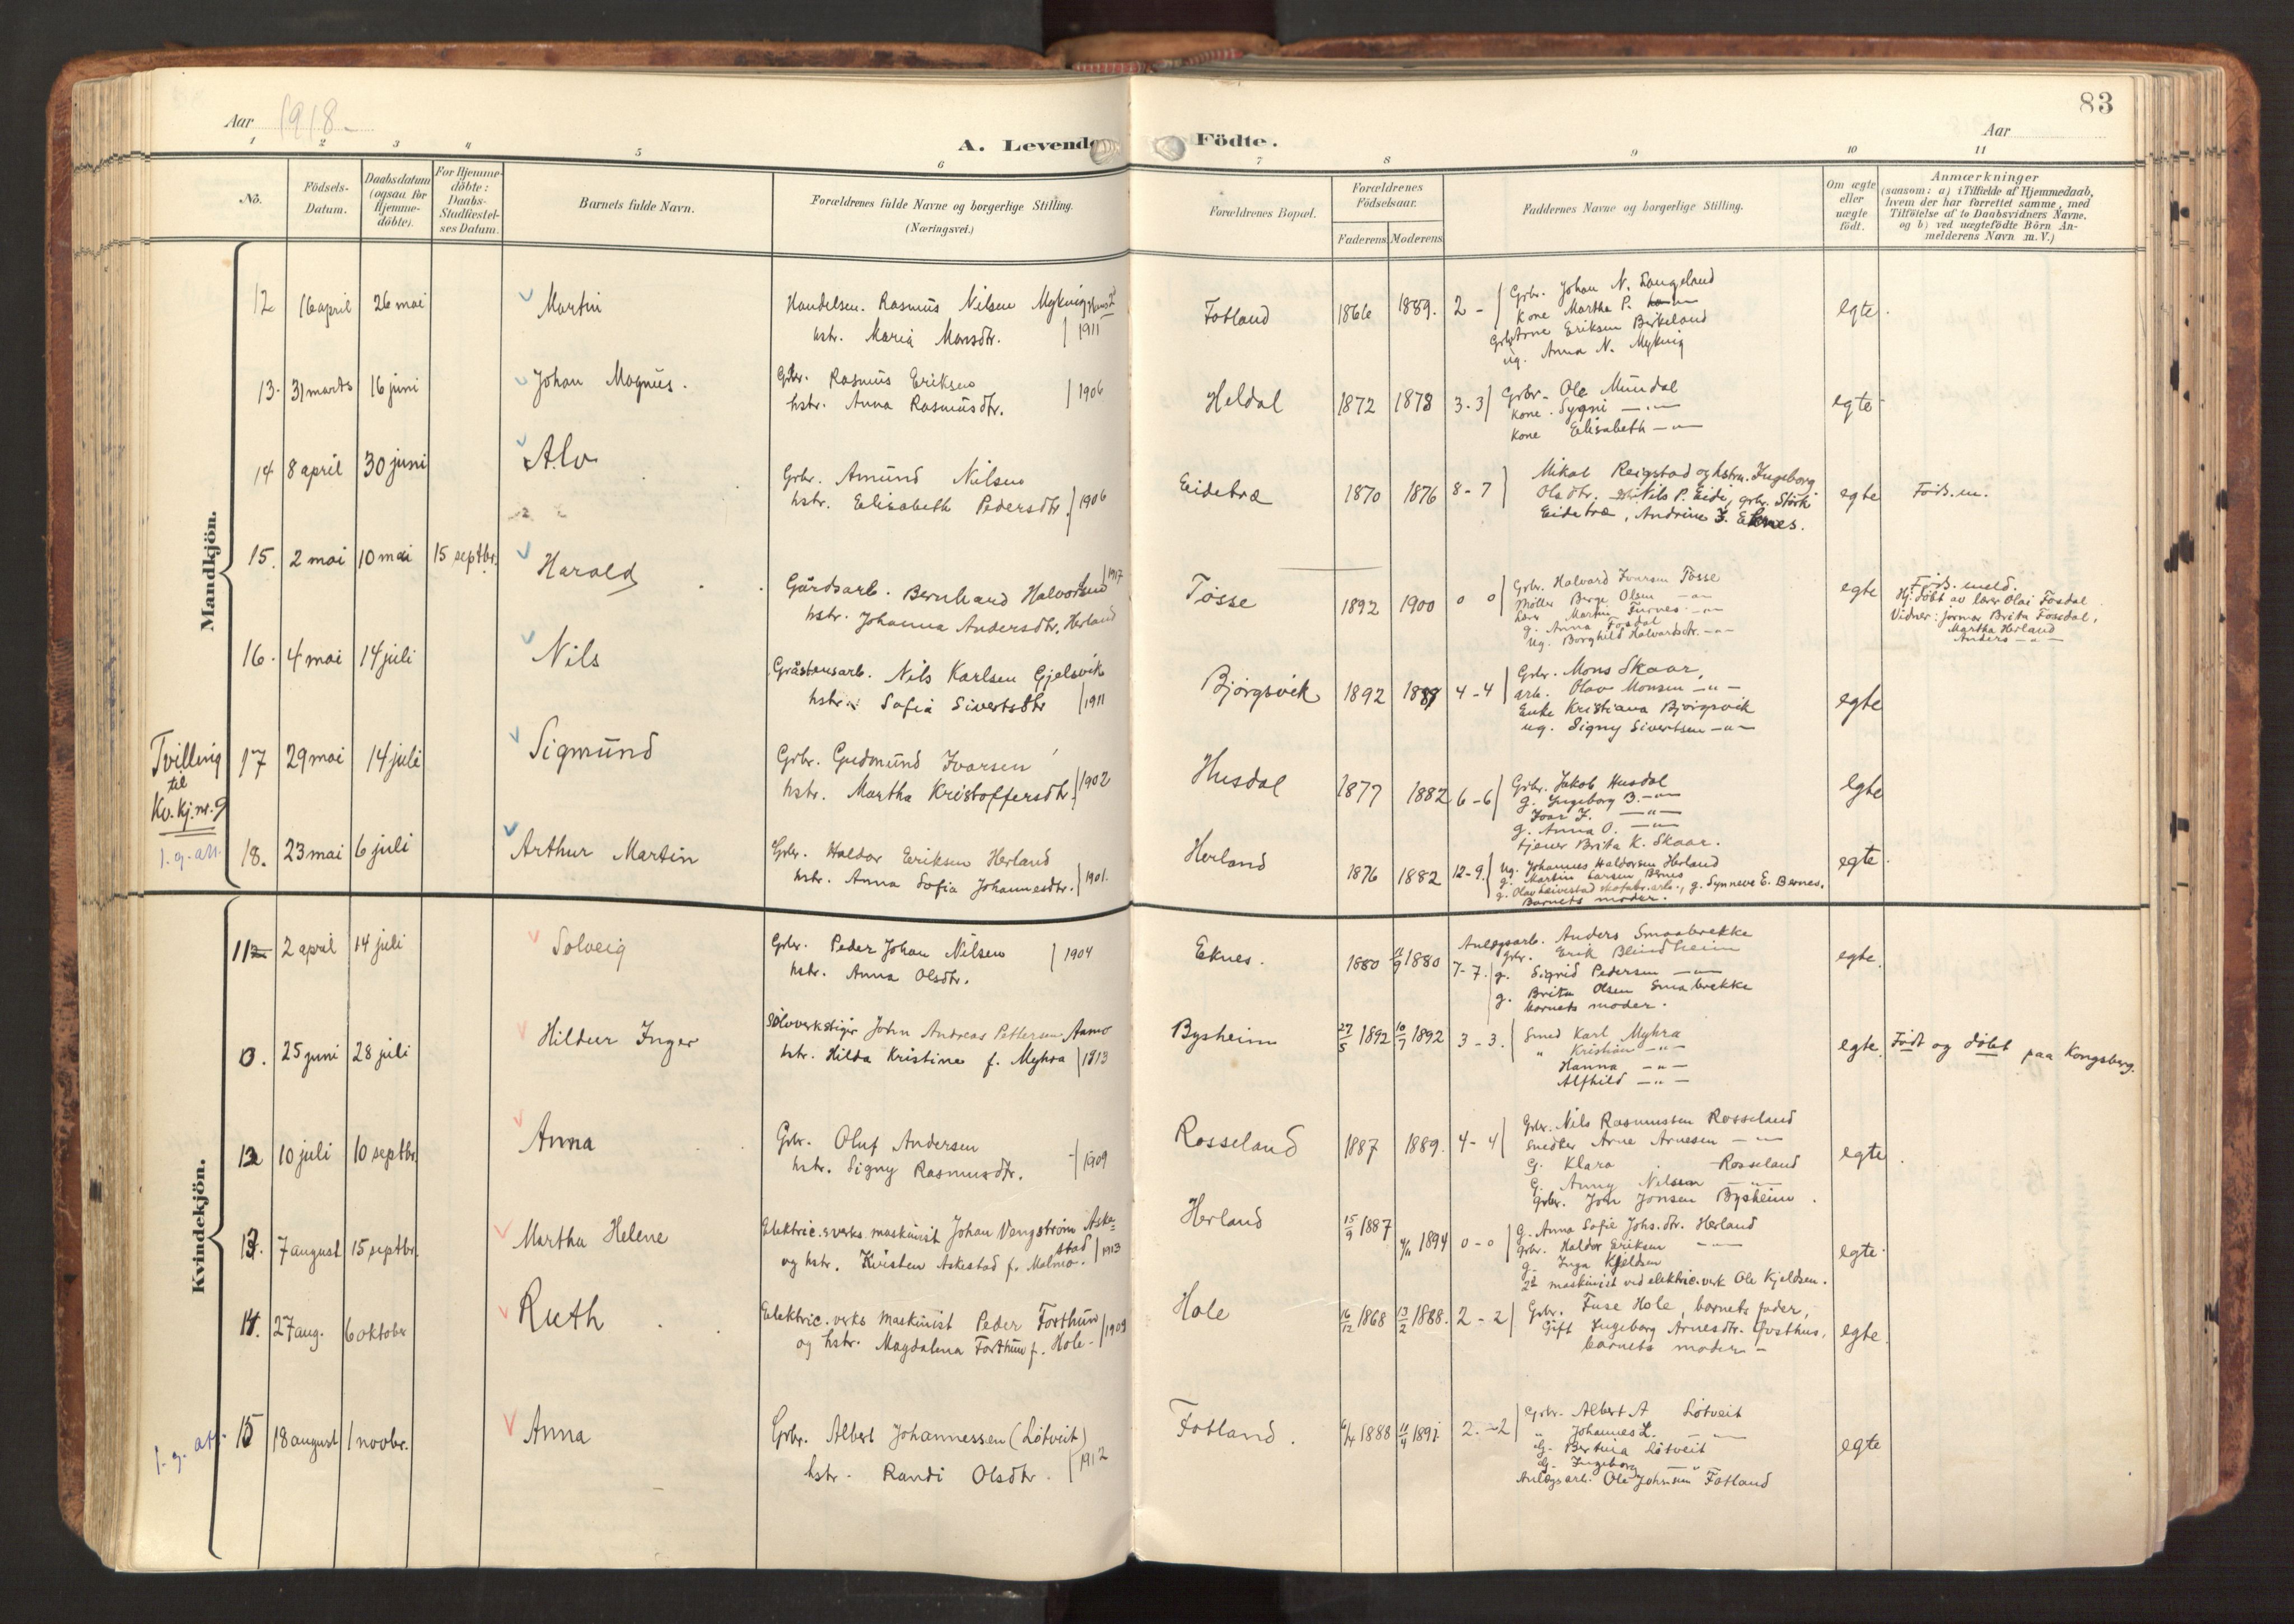 83
Aar 1918.
Aar
A. Levende Födte.
1 2 3 4 5 6 7 8 9 10 11
No.
Födsels-Datum.
Daabsdatum (ogsaa for Hjemme-döbte).
For Hjemme-döbte: Daabs-Stadfæstel-ses Datum.
Barnets fulde Navn.
Forældrenes fulde Navne og borgerlige Stilling.
(Næringsvei.)
Forældrenes Bopæl.
Forældrenes Födselsaar.
Faderens Moderens
Faddernes Navne og borgerlige Stilling.
Om ægte eller uægte födt.
Anmærkninger
(saasom: a) i Tilfælde af Hjemmedaab,
hvem der har forrettet samme, med
Tilföielse af to Daabsvidners Navne.
og b) ved uægtefödte Börn An-
melderens Navn m. V.)
Mandkjön.
12 16 april 26 mai Martin
Handelsm. Rasmus Nilsen Myking
hstr. Maria Monsdtr. 1911
Fotland 1866 1889. 2 -
Grbr. Johan N. Langeland
Kone Martha P.
Grbr Arne Eriksen Birkeland
ug. Anna N. Myking
egte.
13. 31 marts 16 juni Johan Magnus.
Gbr. Rasmus Eriksen
hstr. Anna Rasmusdtr. 1906
Heldal 1872 1878 3-3
Grbr. Ole Mundal
Kone. Sygni — " —
Kone Elisabeth — " —
egte
14 8 april 30 juni Alv
Grbr. Amund Nilsen
hstr. Elisabeth Pedersdtr. 1906
Eidetræ 1870 1876 8-7
Mikal Reigstad og hstr. Ingeborg
Olsdtr. Nils P. Eide, grbr. Störk
Eidetræ, Andrine J. Eknes.
egte Föds.m.
15. 2 mai 10 mai 15 septbr. Harald
Gårdsarb. Bernhard Halvorsen 1917
hstr. Johanna Andersdtr. Herland
Tösse 1892 1900 0 0
Grbr. Halvard Ivarsen Tösse
Möller Berge Olsen — " —
Lærer Martin Furnes — " —
g. Anna Fosdal
Ug. Borghild Halvardsdtr. — " —
egte Föds. meld.
Hj. döbt av lærer Olai Fosdal
Vidner: jormor Brita Fossdal,
Martha Herland
Anders — " —
16. 4 mai 14 juli Nils
Gråstensarb. Nils Karlsen Gjelsvik
hstr. Sofia Sivertsdtr 1911
Bjørgsvik 1892 1889 4-4
Grbr. Mons Skaar,
arb. Olav Monsen — " —
Enke Kristiana Bjørgsvik
ug. Signy Sivertsen — " —
egte
Tvilling
til
Kv. kj. nr. 9
17 29 mai 14 juli Sigmund
Grbr. Gudmund Ivarsen
hstr. Martha Kristoffersdtr. 1902
Husdal 1877 1882 6-6
Grbr. Jakob Husdal
g. Ingeborg B. — " —
Ivar J. — " —
g. Anna O. — " —
tjener Brita K. Skaar.
egte
1. g. att.
18. 23 mai 6 juli Arthur Martin
Grbr. Haldor Eriksen Herland
hstr. Anna Sofia Johannesdtr. 1901.
Herland 1876 1882 12-9.
Ug. Johannes Haldorsen Herland
g. Martin Larsen Bernes
g. Olav Leivestad skofabr.arb., g. Synneve E. Bernes.
Barnets moder.
egte.
Kvindekjön.
11 2 april 14 juli Solveig
Grbr. Peder Johan Nilsen 1904
hstr. Anna Olsdtr.
Eknes. 1880 11/9 1880 7-7.
Anlegsarb. Anders Smaabrekke
grbr. Erik Blindheim
g. Sigrid Pedersen — " —
g. Brita Olsen Smabrekke
barnets moder.
egte.
25 juni 28 juli Hildur Inger
Sölvverkstiger John Andreas Pettersen Aamo
hstr. Hilda Kristine f. Myhra 1913
Bysheim 27/5 1892 10/7 1892 3-3.
Smed Karl Myhra
" Kristian — " —
Hanna — " —
Alfhild — " —
egte. Födt og döbt paa Kongsberg.
12 10 juli 10 septbr. Anna
Grbr. Oluf Andersen
hstr. Signy Rasmusdtr. 1909
Rosseland 1887 1889. 4-4
Grbr. Nils Rasmussen Rosseland
Snedker Arne Arnesen — " —
G. Klara Rosseland
G. Anny Nilsen — " —
Grbr. Jon Jonsen Bysheim.
egte.
13. 7 august 15 septbr. Martha Helene
Elektric.sverks. maskinist Johan Vengström Aske-
stad
og hstr. Kirsten Askestad f. Malmo. 1913
Herland 15/9 1887 1894 0-0
G. Anna Sofie Johs.dtr. Herland
Grbr. Haldor Eriksen — " —
g. Inga Kjeldsen
2den maskinist ved elektric.verk Ole Kjeldsen.
egte.
14. 27 aug. 6 oktober Ruth
Elektric. verks maskinist Peder Forthun
og hstr. Magdalena Forthun f. Hole. 1909
Hole 16/12 1868 13/2 1888. 2-2
Grbr. Fuse Hole, barnets fader,
Gift Ingeborg Arnesdtr. Josthus,
barnets moder —
egte.
1. g. att.
15 18 august 1 novbr. Anna
Grbr. Albert Johannessen (Lötveit)
hstr. Randi Olsdtr. 1912
Fotland. 6/4 1888 11/4 1891. 2.-2
Grbr. Albert A. Lötveit
" Johannes L. — " —
G. Bertina Lötveit
G. Ingeborg — " —
Anlegsarb. Ole Johnsen Fotland
egte